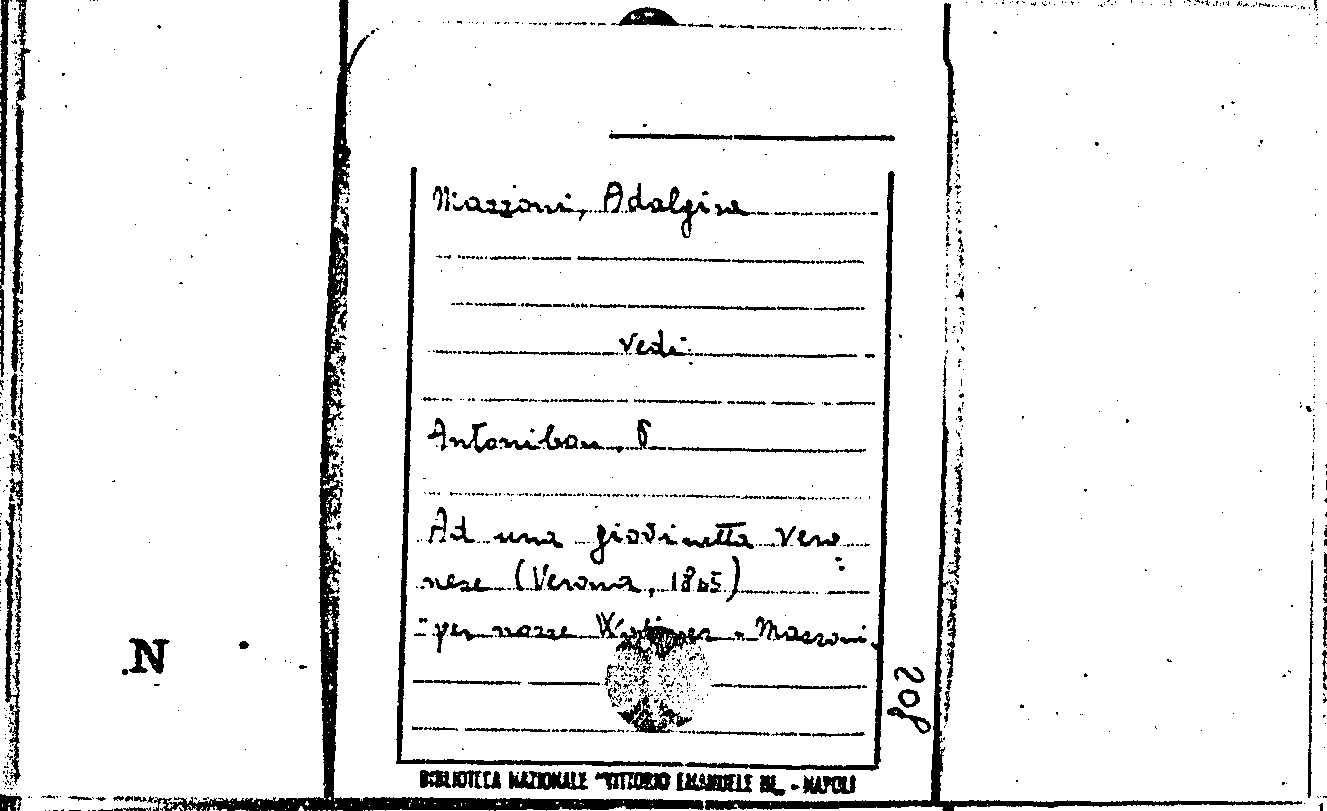 Mazzoni, Adalgisa
vedi:
Antonibon, F
Ad una giovinetta vero=
nese (Verona, 1845)
"per nozze - Mazzoni.
208
N
BIBLIOTECA NAZIONALE "VITTORIO EMANUELE III" - NAPOLI